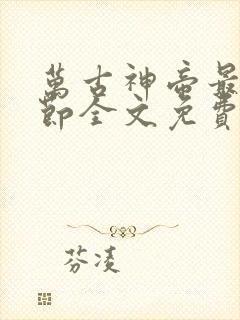 萬古神帝最
節全文免費
芬凌